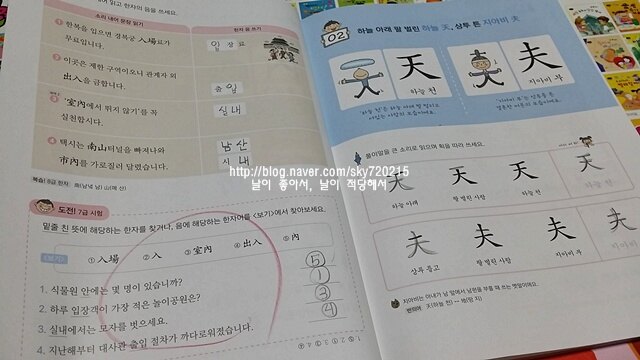 읽고 한자의 음을 쓰세요.
소리 내어 문장 읽기
한자 음 쓰기
1 한복을 입으면 경복궁 入場료가
무료입니다.
입 장 료
2 이곳은 제한 구역이오니 관계자 외
出入을 금합니다.
출 입
3 '室內에서 뛰지 않기'를 꼭
실천합시다.
실 내
4 택시는 南山터널을 빠져나와
市內를 가로질러 달렸습니다.
남 산
시 내
복습! 8급 한자
도전! 7급 시험
밑줄 친 뜻에 해당하는 한자를 찾거나, 음에 해당하는 한자어를 <보기>에서 찾아보세요.
<보기> ① 入場 ② 入 ③ 室內 ④ 出入 ⑤ 內
1. 식물원 안에는 몇 명이 있습니까?
2. 하루 입장객이 가장 적은 놀이공원은?
3. 실내에서는 모자를 벗으세요.
4. 지난해부터 대사관 출입 절차가 까다로워졌습니다.
⑤
①
③
④
02 하늘 아래 팔 벌린 하늘 天, 상투 튼 지아비 夫
天
하늘 천
夫
지아비 부
'하늘 천'은 하늘 아래 팔 벌리고
풀이말을 큰 소리로 읽으며 획을 따라 쓰세요.
天 天 天 天
하늘 아래 팔 벌린 사람 하늘 천
夫 夫 夫 夫
상투 튼고 팔 벌린 사람 지아비 부
http://blog.naver.com/sky720215
날이 좋아서, 날이 적당해서